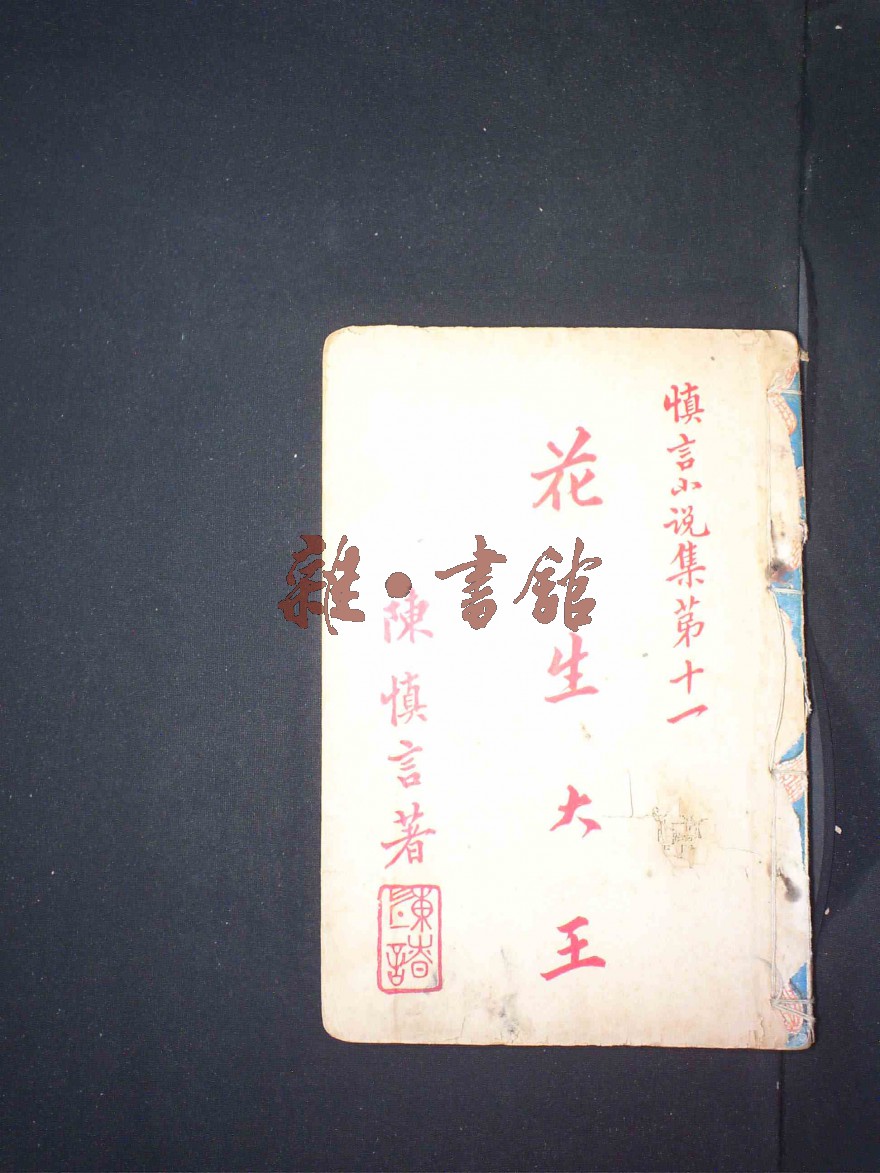 慎言小说集第十一
花生大王
陳慎言著
雜·書館